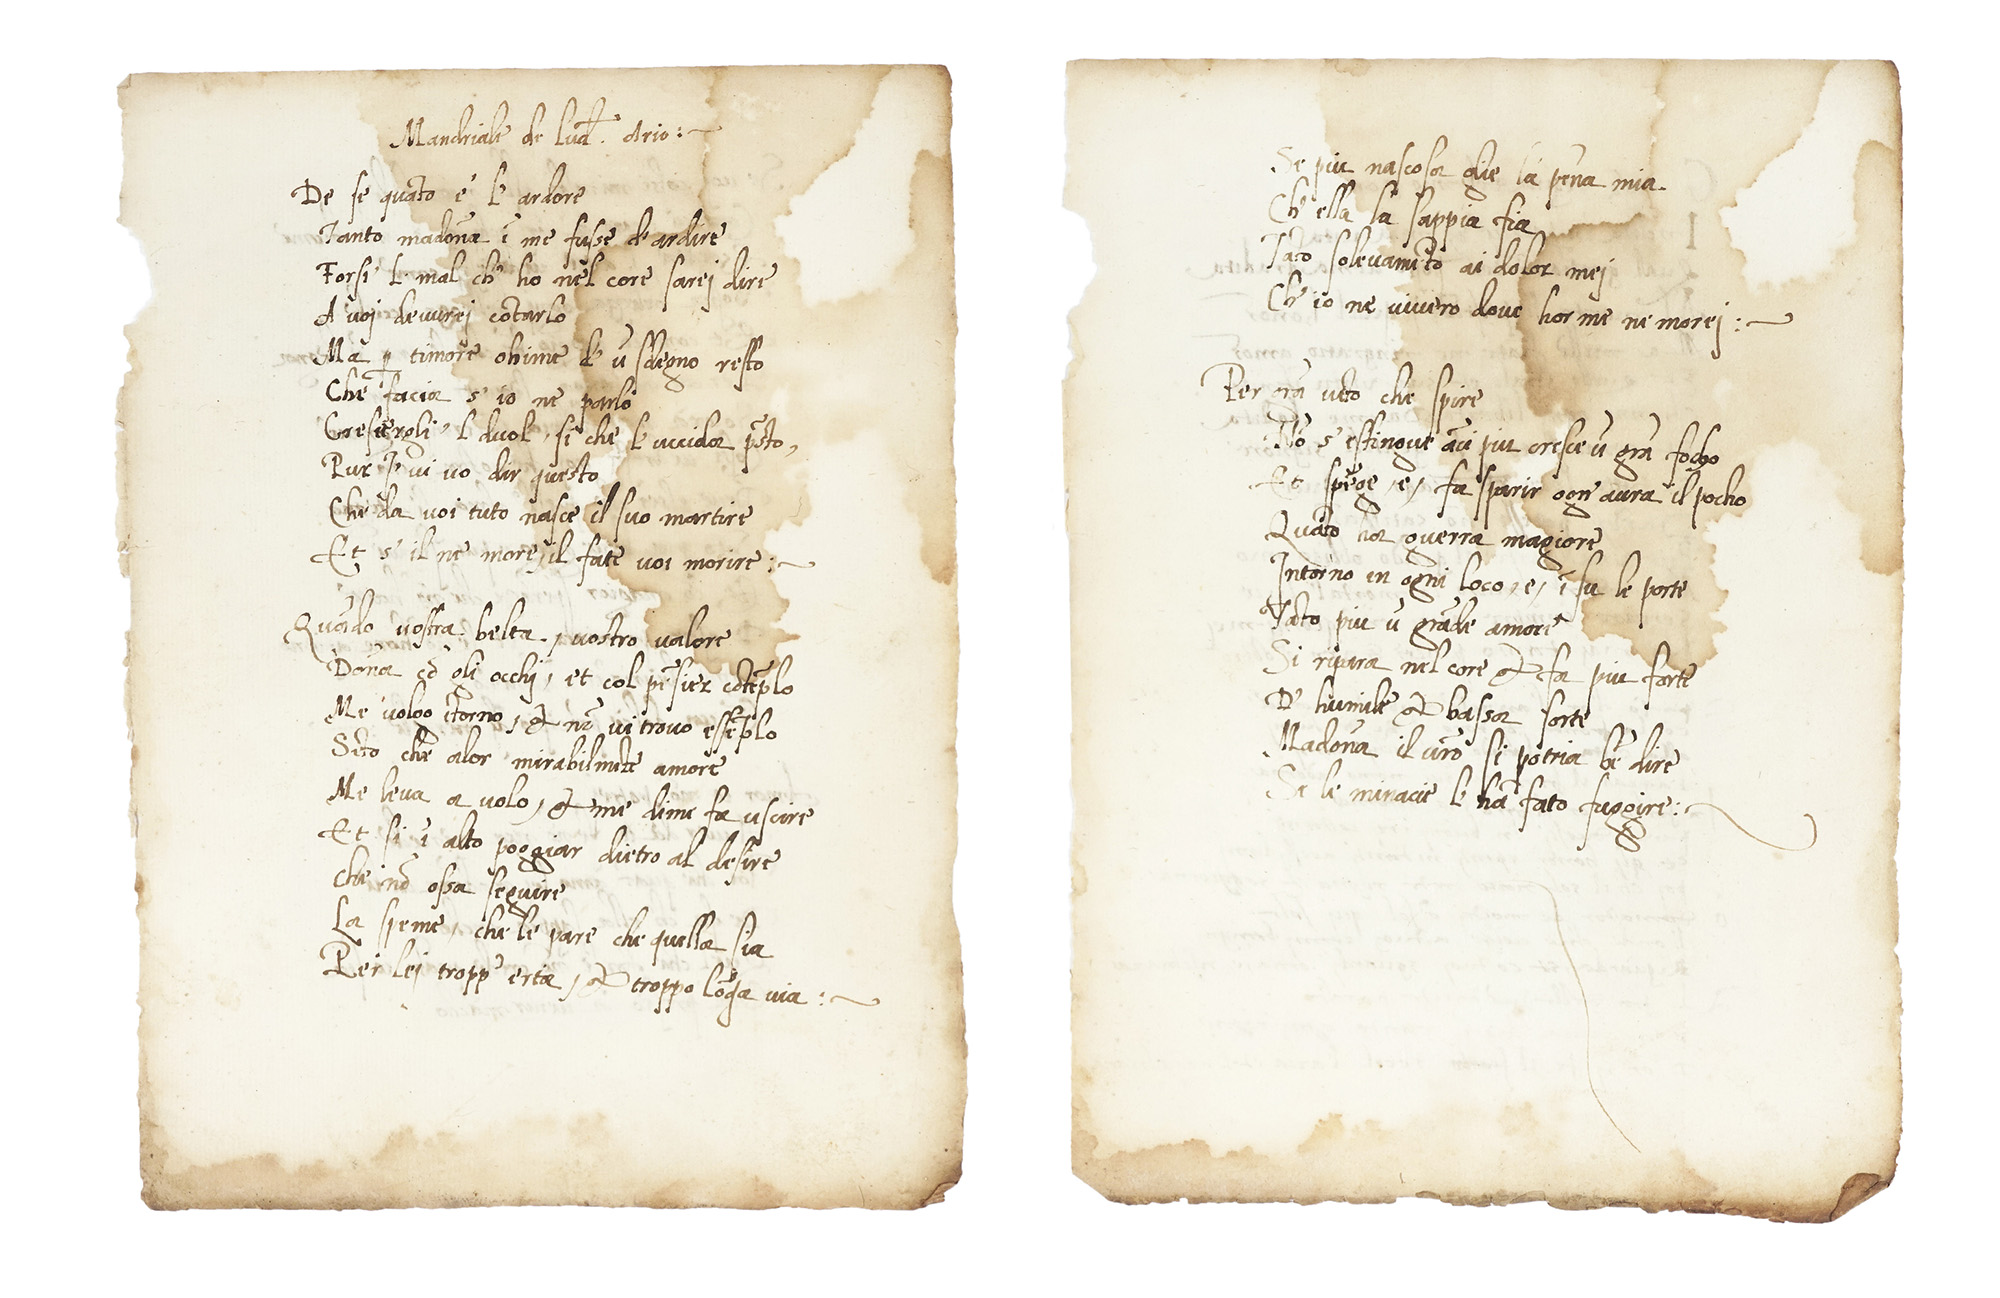 Mandriale de Lud. Ario:~
De se quãto e' l' ardore
Tanto madoña ĩ me fusse l' ardire
Forsi l mal ch' ho nel core sarej dire
A voj devvrej cõtarlo
Ma ꝑ timore ohime d' ũ sdegno resto
Che facia s' io ne parlo
l duol, si che l' uccida p̃sto,
Pur Jo vi vo dir questo
Che da voi tuto nasce il suo martire
Et s' il ne more, il fate voi morire:~
Quãdo vostra belta, vostro valore
Doña cõ gli occhi, et col pẽsier cõtẽplo
Me volgo ĩtorno, & nõ vi trovo essẽplo
Sẽto che alor mirabilmẽte amore
Me leva a volo, & me di me fa uscire
Et si ĩ alto poggiar dietro al desire
Che nõ ossa seguire
La speme, che le pare che quella sia
Per lei tropp' erta, & troppo lõga via:~
Se piu nascosa die la pẽna mia.
Ch' ella la sappia fia
Tãto solevamẽto ai dolor mej
Ch' io ne vivero dove hor me ne morej:~
Per grã vẽto che spire
Nõ s' estingue ãci piu cresce ũ grã focho
Et spẽge, e, fa sparir ogn' aura il pocho
Quãto ha guerra magiore
Intorno in ogni loco, e, ĩ su le porte
Tãto piu ũ grãde amore
Si ripara nel core & fa piu forte
D' humile & bassa sorte
Madoña il vr̃o si potria bẽ dire
Se le minacie l' hã fato fuggire:~